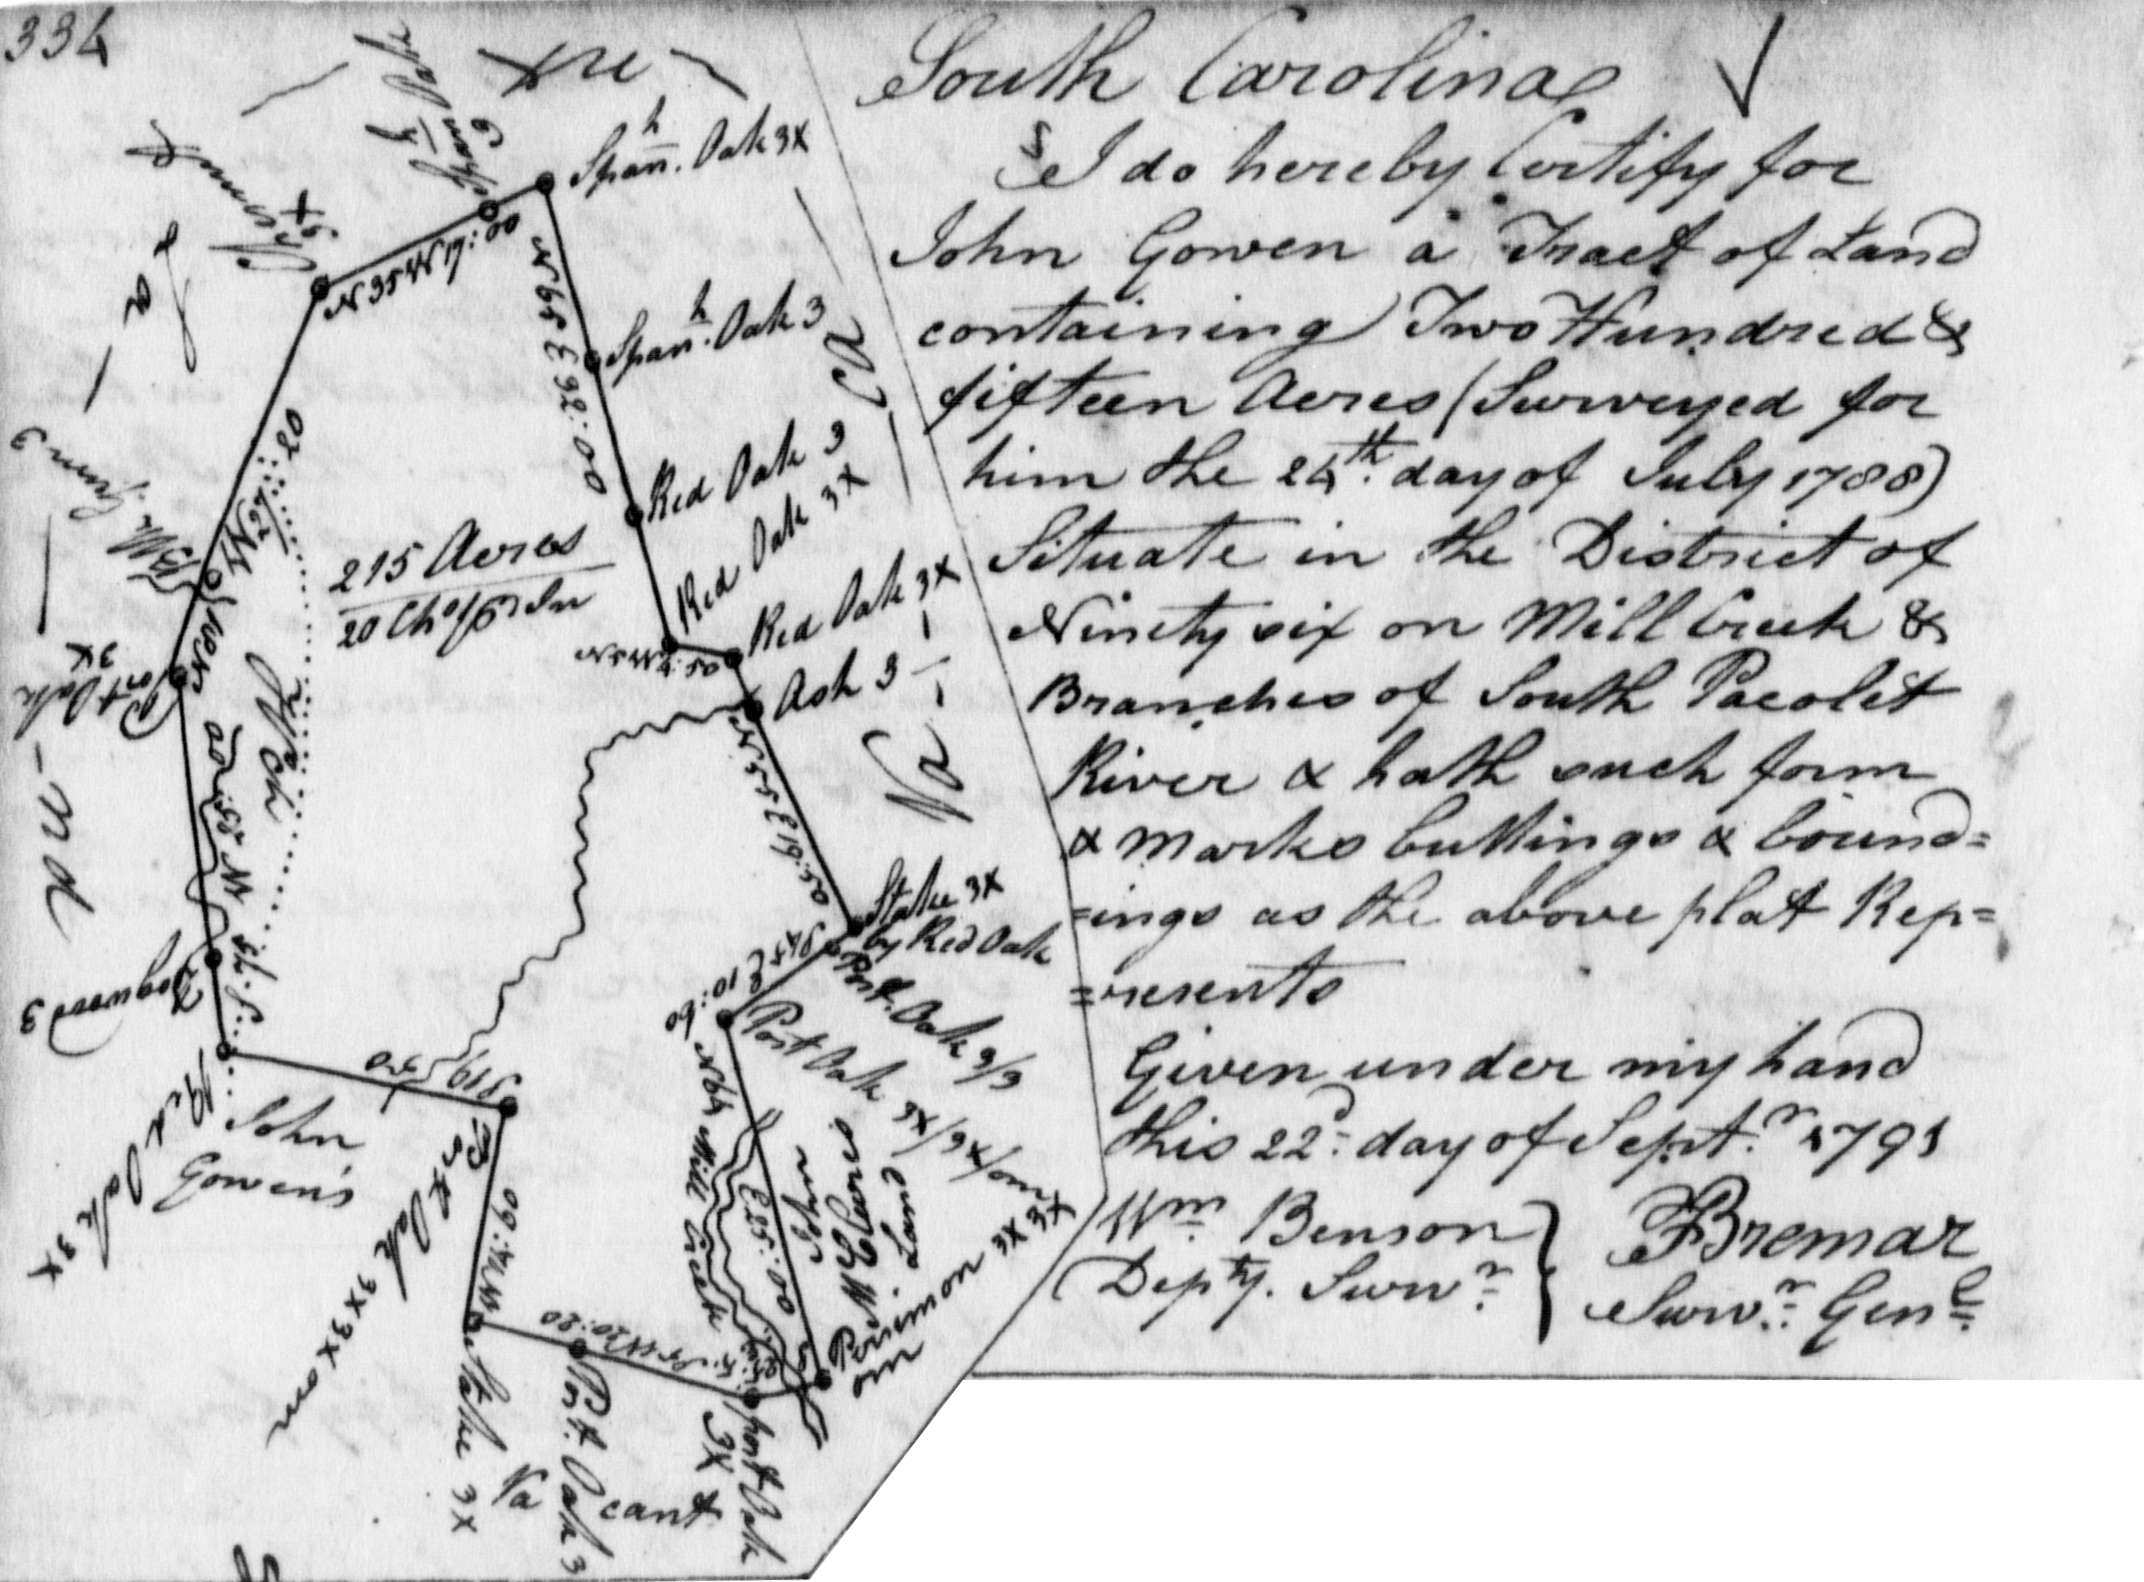 334
South Carolina
I do hereby Certify for
John Gowen a Tract of Land
containing Two Hundred &
fifteen Acres (Surveyed for
him the 24th. day of July 1788)
Situate in the District of
Ninety six on Mill Creek &
Branches of South Pacolet
River & hath such form
& marks buttings & bound=
=ings as the above plat Rep=
=resents
Given under my hand
this 22d. day of Septr. 1791
Wm Benson
Depty. Survr.
F Bremar
Survr. Genl.
Spanh. Oak 3X
Spanh. Oak 3
Red Oak 3
Red Oak 3X
Red Oak 3X
Ash 3
Stake 3X
by Red Oak
Post. Oak 3/3
Post Oak 3X/3X/om
Persimon 3X 3X
om
N 35 W 17:00
N 65 E 92:00
215 Acres
N 55 E 19:50
S 45 E 10:60
Mill Creek
E 55:00
Dogwood 3
Red Oak 3X
John
Gowen's
Post Oak 3X3Xom
Post Oak
3X
Stake 3X
Post. Oak 3
Post Oak
3X
Va cant